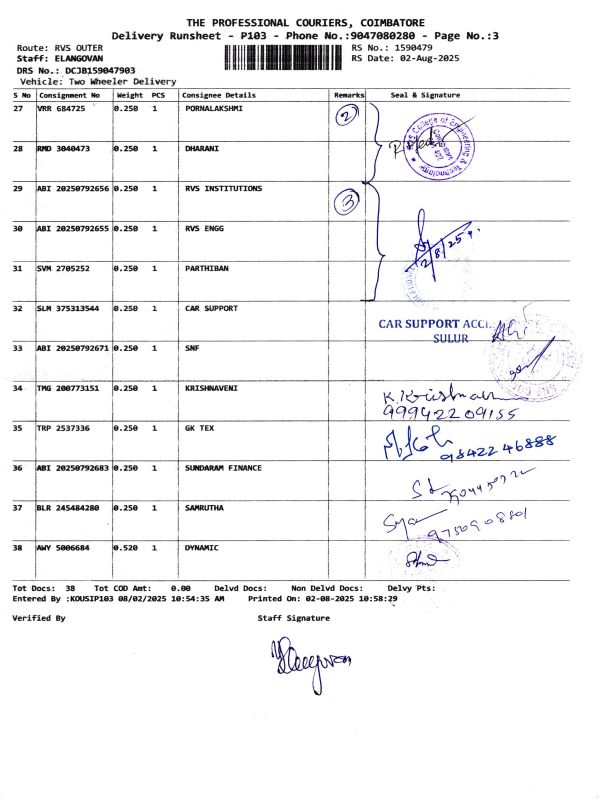 THE PROFESSIONAL COURIERS, COIMBATORE
Delivery Runsheet - P103 - Phone No.:9047080280 - Page No.:3
Route: RVS OUTER RS No.: 1590479
Staff: ELANGOVAN RS Date: 02-Aug-2025
DRS No.: DCJB159047903
Vehicle: Two Wheeler Delivery
S No Consignment No Weight PCS Consignee Details Remarks Seal & Signature
27 VRR 684725 0.250 1 PORNALAKSHMI 2
28 RMD 3040473 0.250 1 DHARANI
RVS College of Engineering & Technology
29 ABI 20250792656 0.250 1 RVS INSTITUTIONS 3
30 ABI 20250792655 0.250 1 RVS ENGG
2/8/25
31 SVM 2705252 0.250 1 PARTHIBAN
32 SLM 375313544 0.250 1 CAR SUPPORT CAR SUPPORT ACC
SULUR
33 ABI 20250792671 0.250 1 SNF
34 TMG 200773151 0.250 1 KRISHNAVENI
99942209155
35 TRP 2537336 0.250 1 GK TEX 9842246888
36 ABI 20250792683 0.250 1 SUNDARAM FINANCE
37 BLR 245484280 0.250 1 SAMRUTHA
38 AWY 5006684 0.520 1 DYNAMIC
Tot Docs: 38 Tot COD Amt: 0.00 Delvd Docs: Non Delvd Docs: Delvy Pts:
Entered By :KOUSIP103 08/02/2025 10:54:35 AM Printed On: 02-08-2025 10:58:29
Verified By Staff Signature